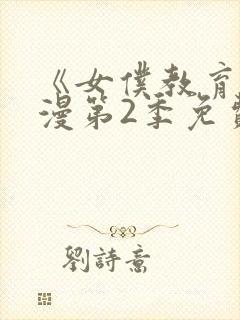 《女僕教育
漫第2季免費
劉詩意